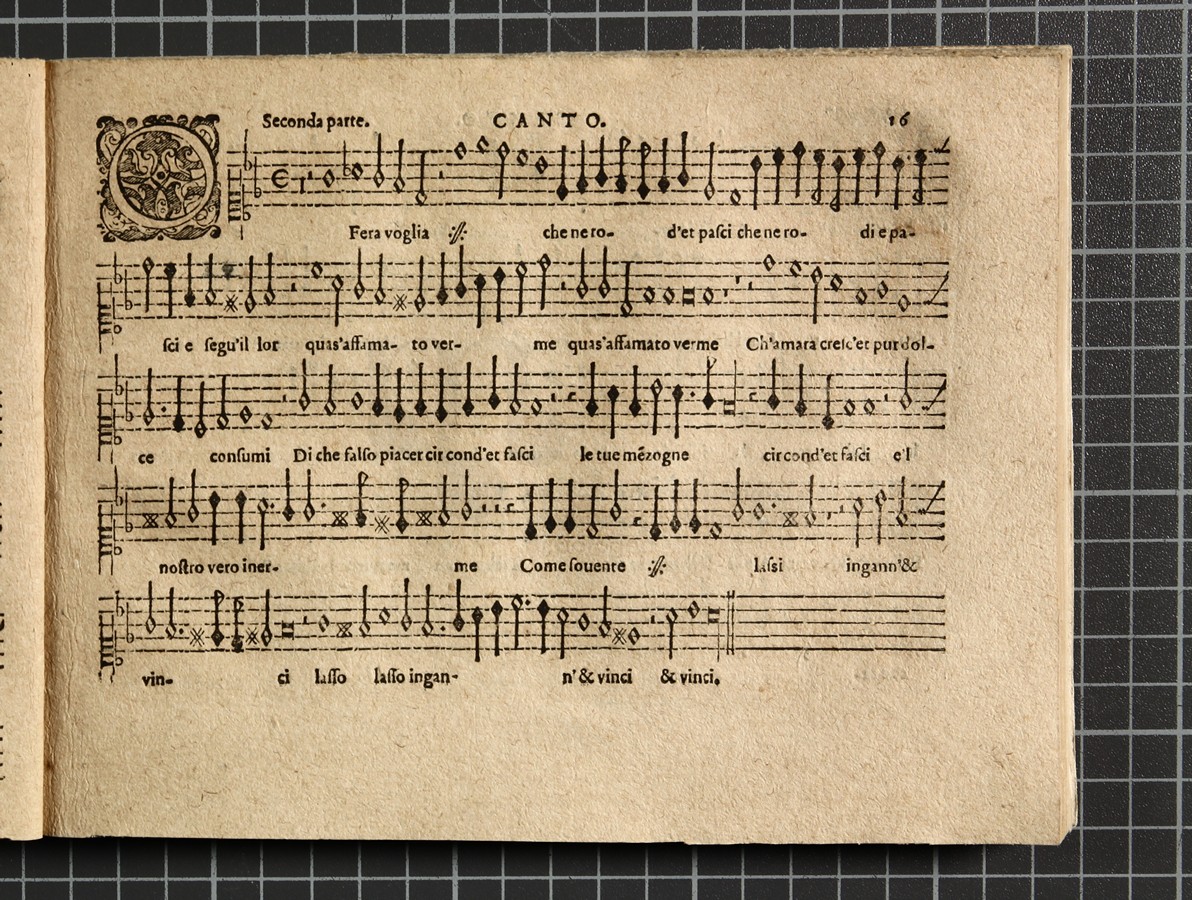 Seconda parte. CANTO. 16
O Fera voglia :||: che ne ro- d'et pasci che ne ro- di e pa-
sci e segu'il lor quas'affama- to ver- me quas'affamato verme Ch'amara cresc'et pur dol-
ce consumi Di che falso piacer cir cond'et fasci le tue mẽzogne cir cond'et fasci e'l
nostro vero iner- me Come souente :||: lassi ingann'&
vin- ci lasso lasso ingan- n'& vinci & vinci.